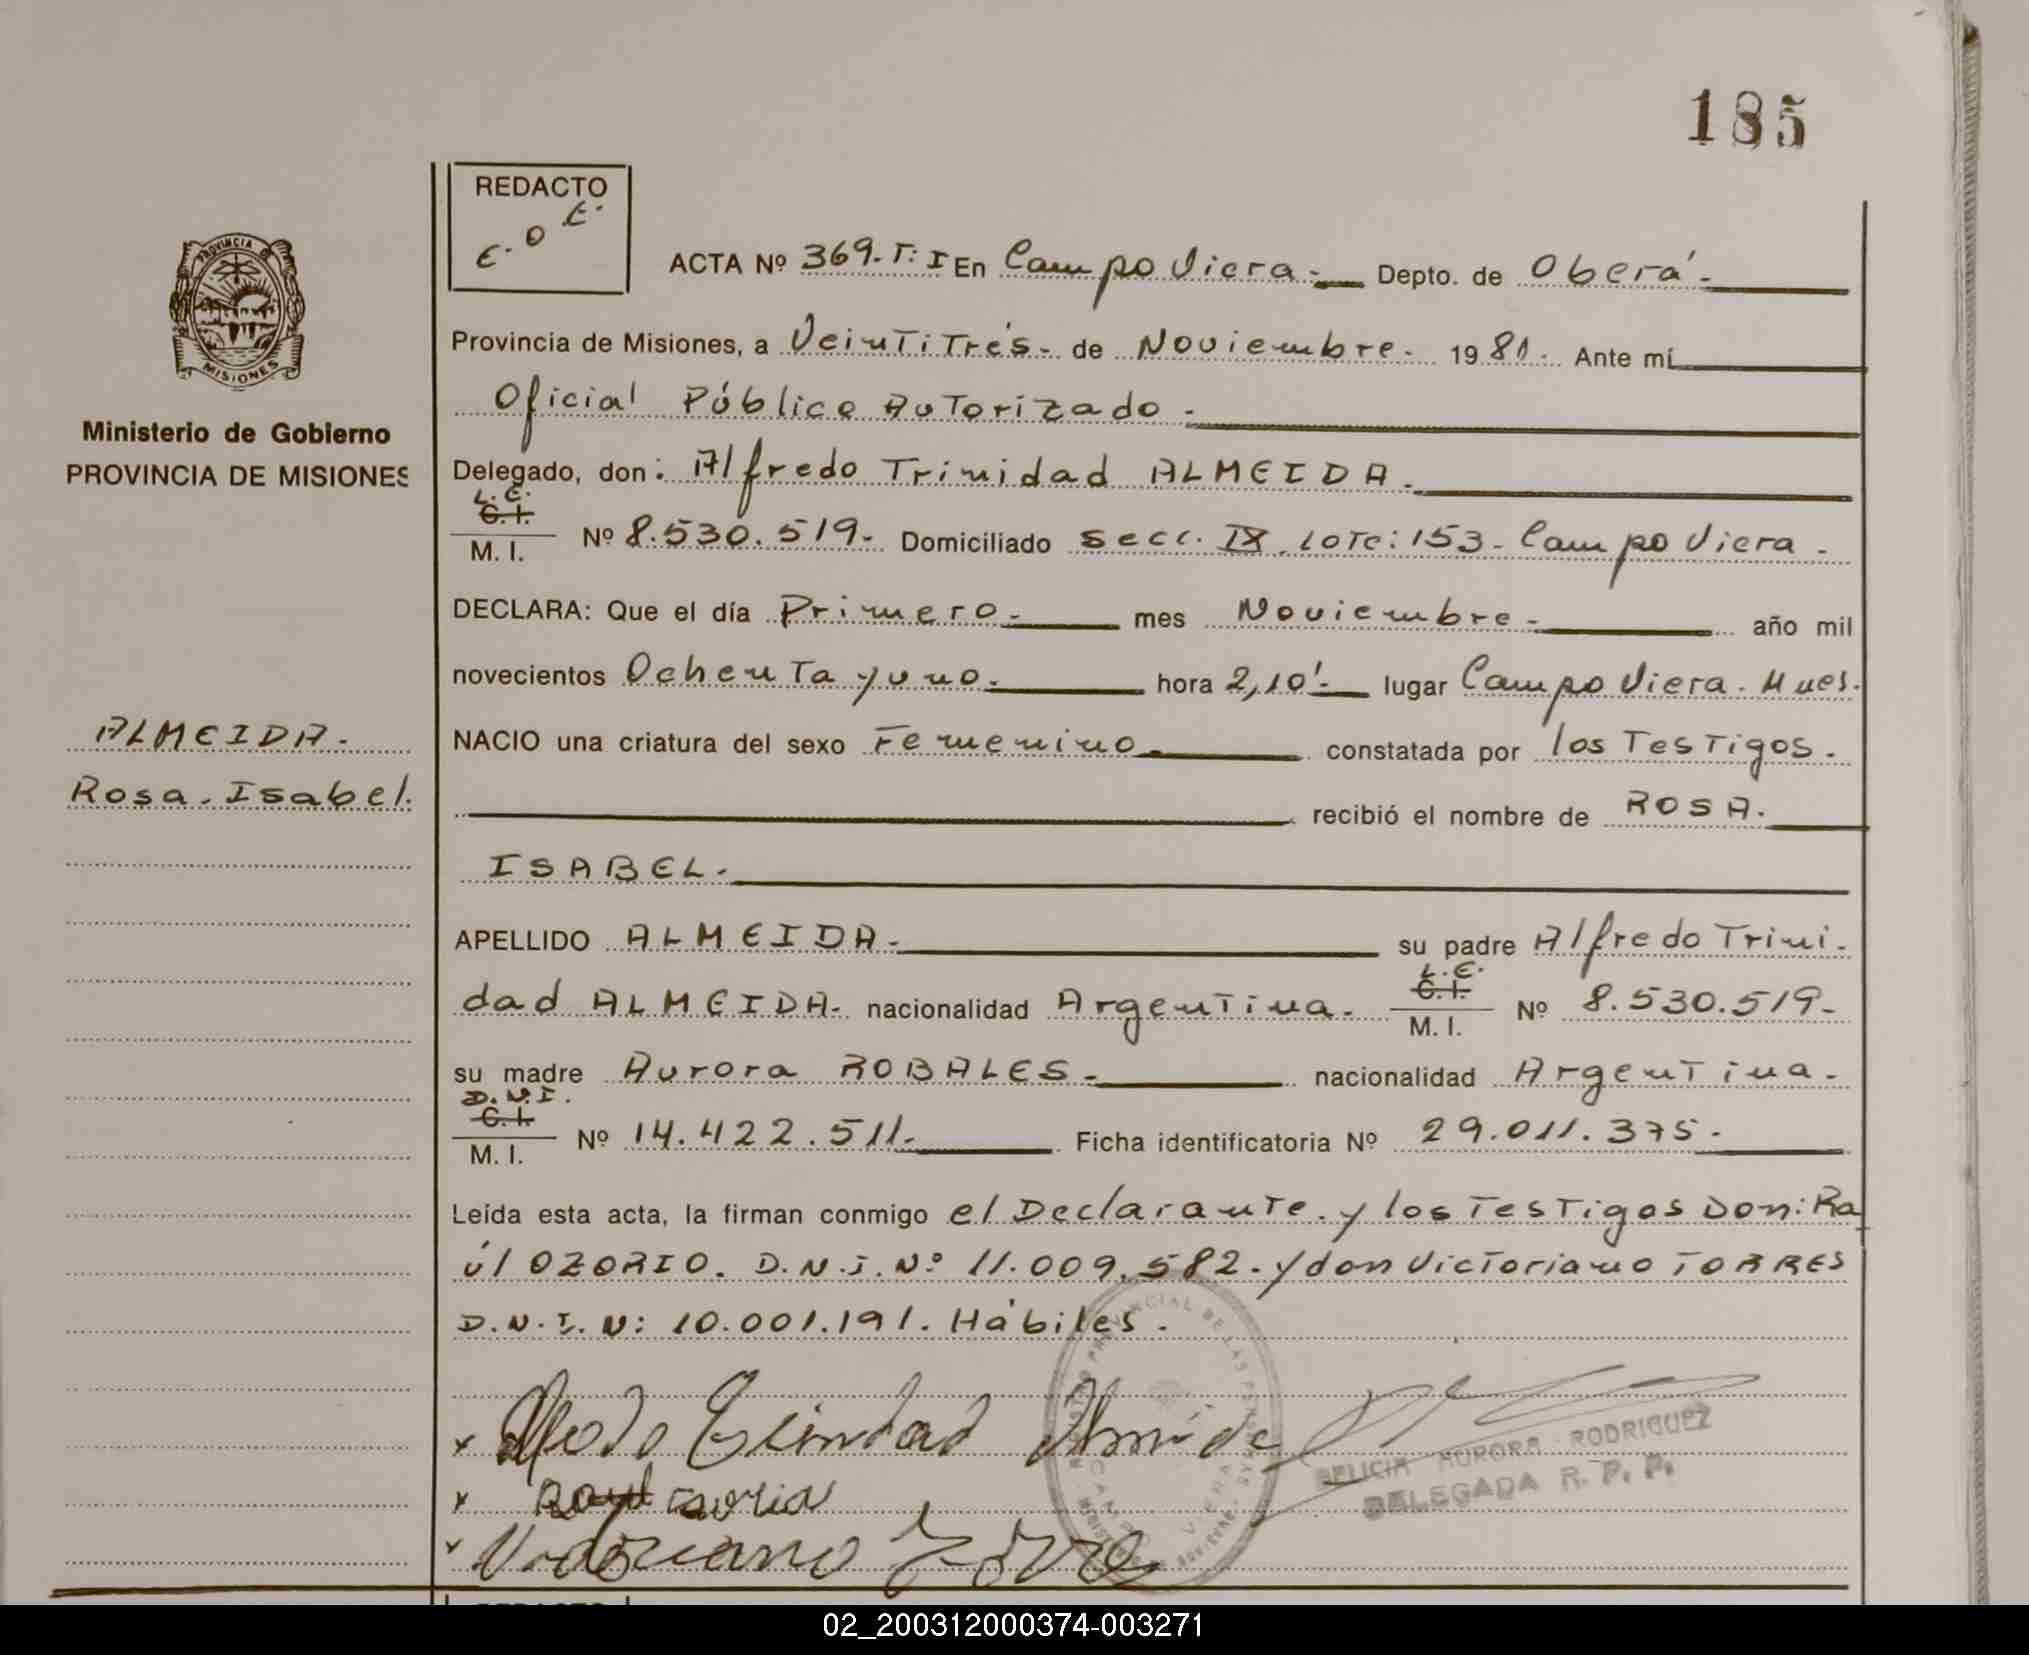 185
REDACTO
E. O E.
ACTA Nº 369. T: I En Campo Viera.- Depto. de Oberá.-
Provincia de Misiones, a Veintitrés.- de Noviembre.- 1981.- Ante mí
Oficial Público Autorizado.-
Delegado, don: Alfredo Trinidad ALMEIDA.-
L.E.
C. I.
M. I.
Nº 8.530.519.- Domiciliado secc. IX. LOTE: 153- Campo Viera.-
DECLARA: Que el día Primero.- mes Noviembre.- año mil
novecientos Ochenta y uno.- hora 2,10'.- lugar Campo Viera. Mnes.
NACIO una criatura del sexo Femenino.- constatada por los Testigos.-
recibió el nombre de ROSA.-
ISABEL.-
APELLIDO ALMEIDA.- su padre Alfredo Trini-
L.E.
C. I.
M. I.
dad ALMEIDA.- nacionalidad Argentina.- Nº 8.530.519.-
su madre Aurora ROBALES.- nacionalidad Argentina.-
D.N.I.
C. I.
M. I.
Nº 14.422.511.- Ficha identificatoria Nº 29.011.375.-
Leída esta acta, la firman conmigo el Declarante. y los Testigos Don: Ra
úl OZORIO. D.N.I. Nº 11.009.582.- y don Victoriano TORRES
D.N.I. N: 10.001.191. Hábiles.-
PROVINCIA DE
MISIONES
Ministerio de Gobierno
PROVINCIA DE MISIONES
ALMEIDA.-
Rosa. Isabel.
REGISTRO PROVINCIAL DE LAS PERSONAS
CAMPO VIERA
FELICIA AURORA RODRIGUEZ
DELEGADA R. P. P.
02_200312000374-003271